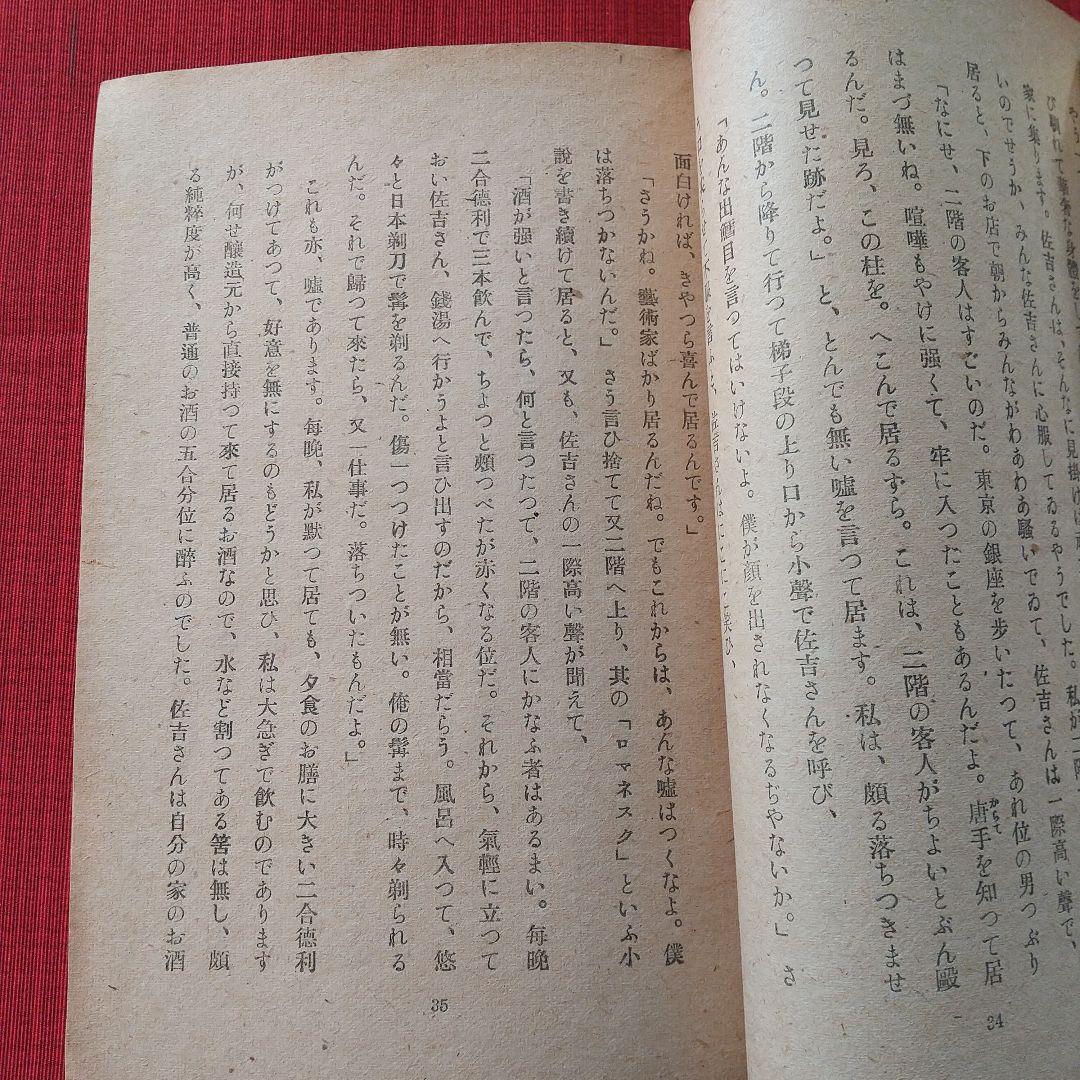 び馴れて華奢な身體を
家に集ります。佐吉さんは、そんなに見掛けは
いのでせうか、みんな佐吉さんに心服してゐるやうでした。私が二階
居ると、下のお店で朝からみんながわあわあ騷いでゐて、佐吉さんは一際高い聲で、
「なにせ、二階の客人はすごいのだ。東京の銀座を歩いたつて、あれ位の男つぷり
はまづ無いね。喧嘩もやけに强くて、牢に入つたこともあるんだよ。唐手を知つて居
からて
るんだ。見ろ、この柱を。へこんで居るずら。これは、二階の客人がちよいとぶん毆
つて見せた跡だよ。」と、とんでも無い噓を言つて居ます。私は、頗る落ちつきませ
ん。二階から降りて行つて梯子段の上り口から小聲で佐吉さんを呼び、
「あんな出鱈目を言つてはいけないよ。僕が顏を出されなくなるぢやないか。」さ
34
面白ければ、きやつら喜んで居るんです。」
「さうかね。藝術家ばかり居るんだね。でもこれからは、あんな噓はつくなよ。僕
は落ちつかないんだ。」さう言ひ捨てて又二階へ上り、其の「ロマネスク」といふ小
說を書き續けて居ると、又も、佐吉さんの一際高い聲が聞えて、
「酒が强いと言つたら、何と言つたつて、二階の客人にかなふ者はあるまい。每晚
二合德利で三本飮んで、ちよつと頰つぺたが赤くなる位だ。それから、氣輕に立つて
おい佐吉さん、錢湯へ行かうよと言ひ出すのだから、相當だらう。風呂へ入つて、悠
々と日本剃刀で髯を剃るんだ。傷一つつけたことが無い。俺の髯まで、時々剃られる
んだ。それで歸つて來たら、又一仕事だ。落ちついたもんだよ。」
これも亦、噓であります。每晚、私が默つて居ても、夕食のお膳に大きい二合德利
がつけてあつて、好意を無にするのもどうかと思ひ、私は大急ぎで飮むのであります
が、何せ釀造元から直接持つて來て居るお酒なので、水など割つてある筈は無し、頗
る純粹度が高く、普通のお酒の五合分位に醉ふのでした。佐吉さんは自分の家のお酒
35